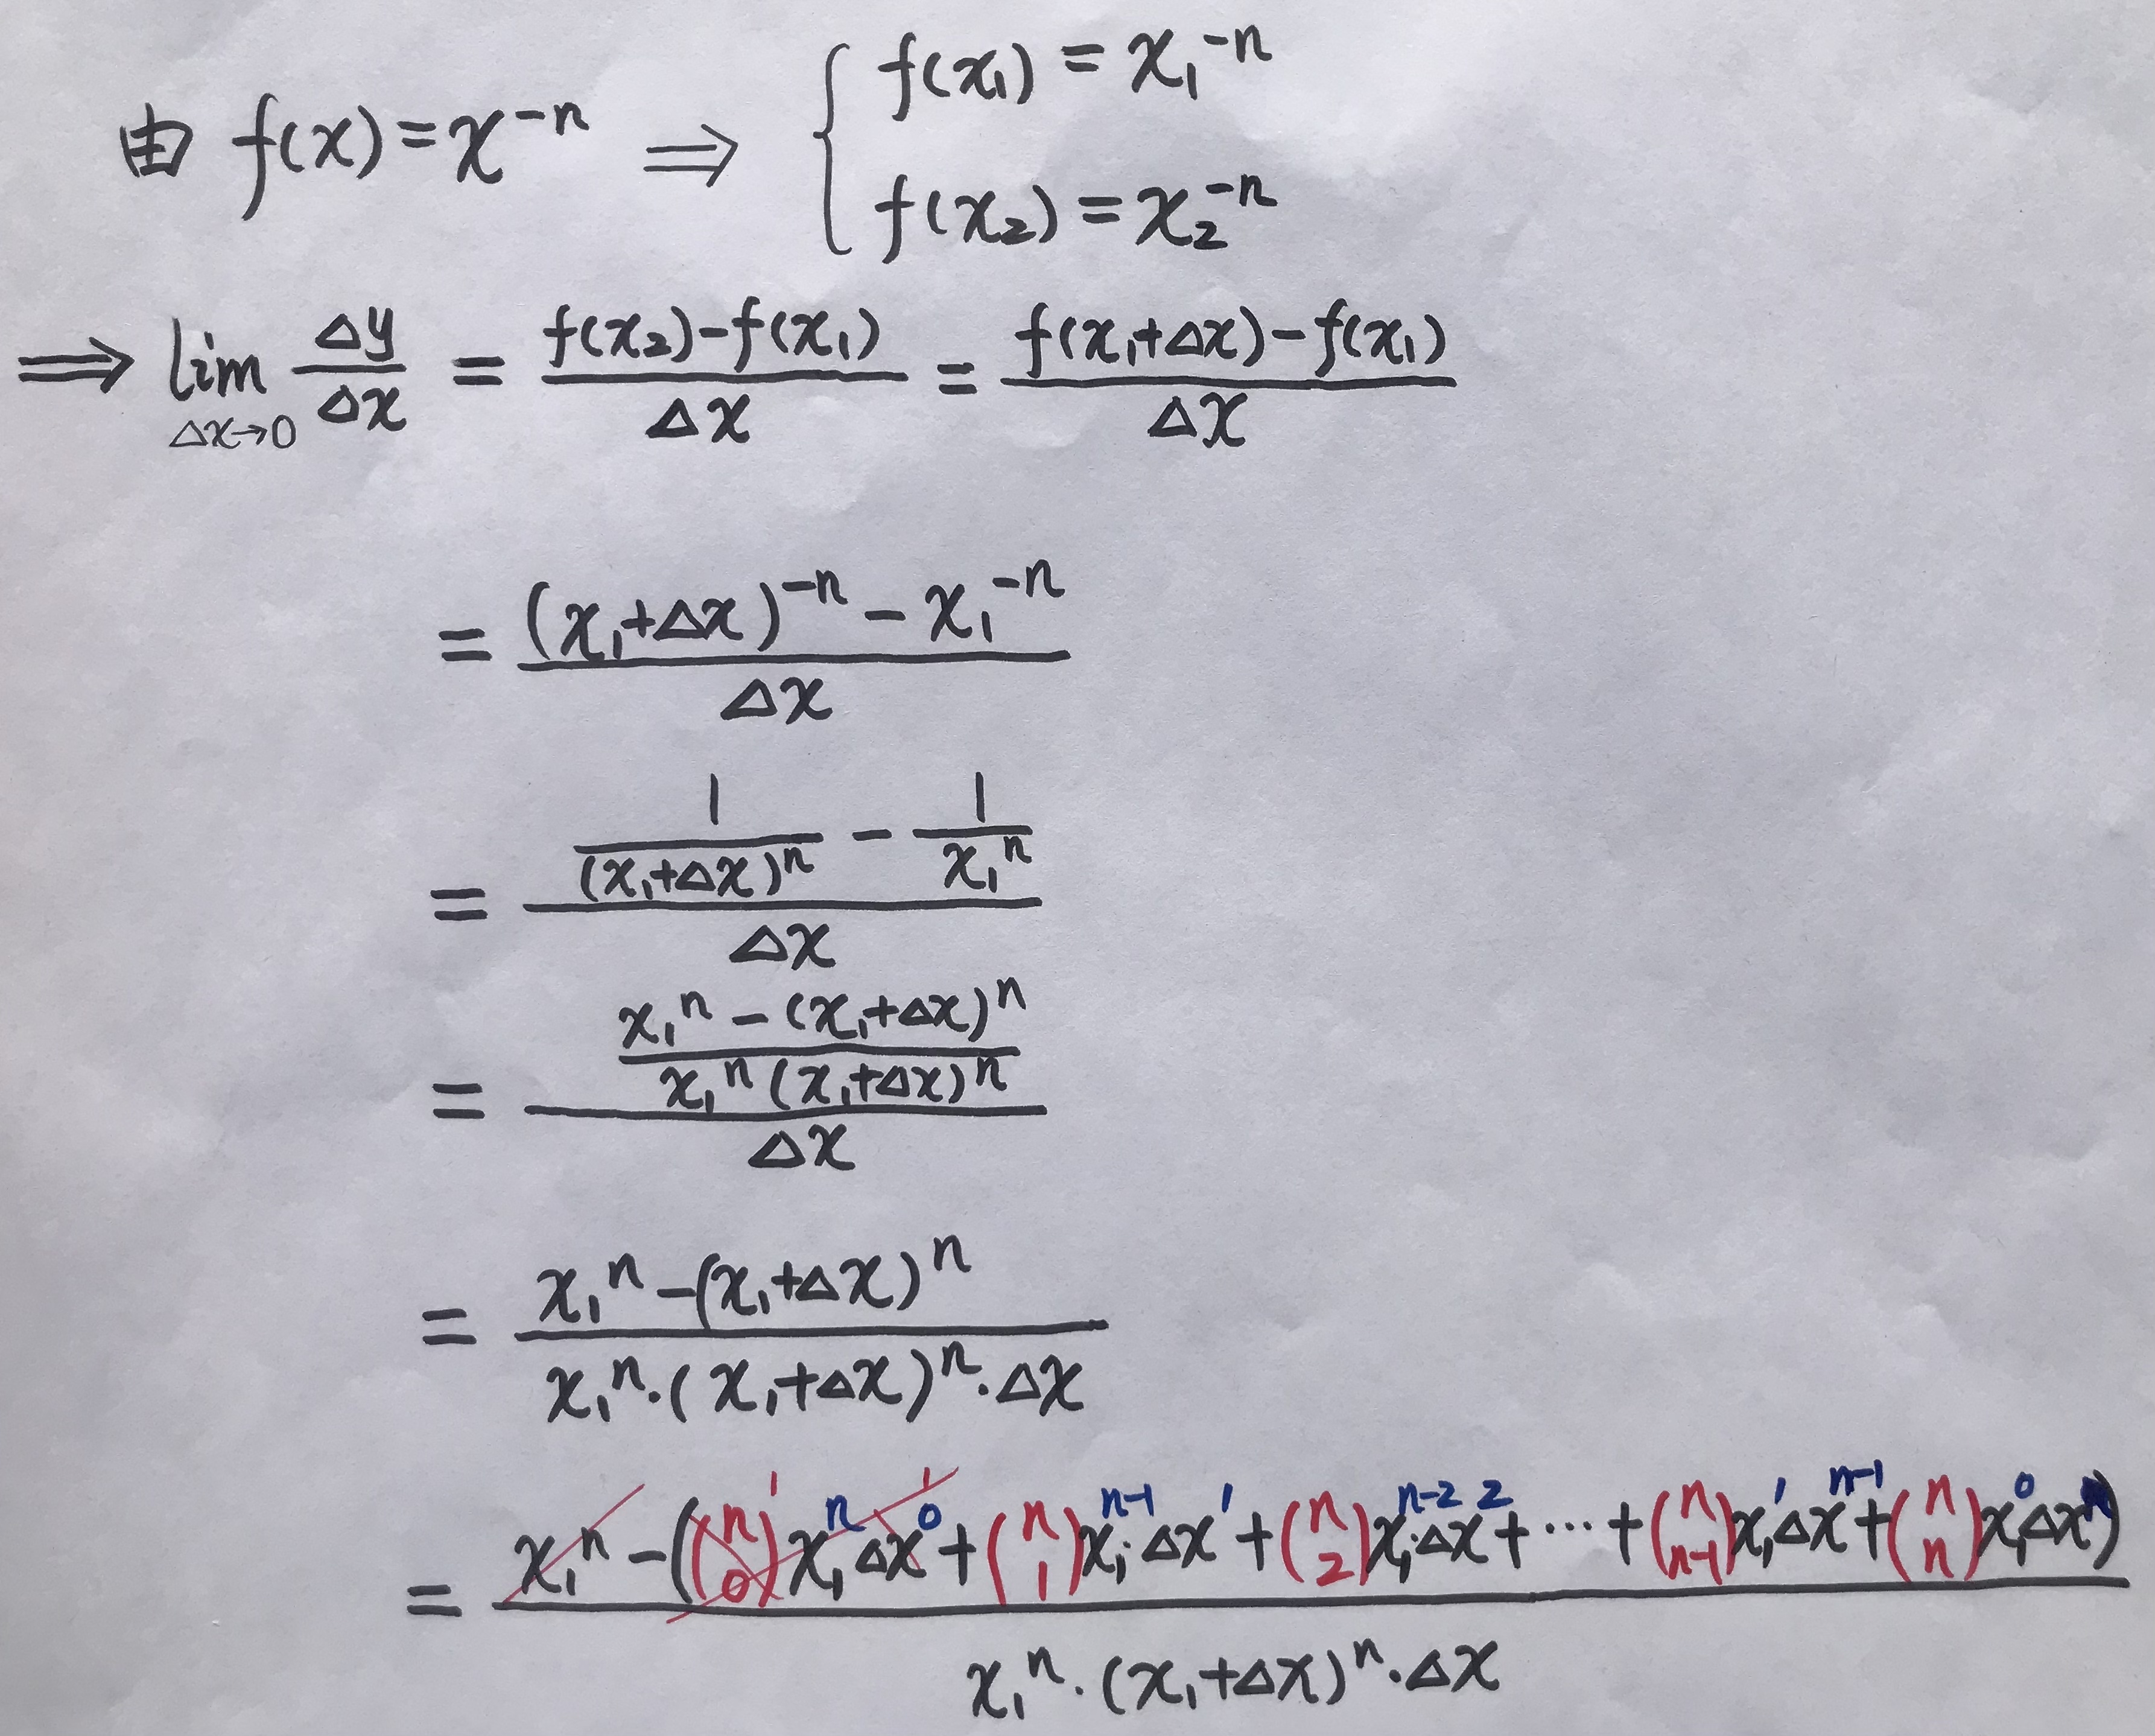 由 f(x) = x^{-n} ⇒ { f(x₁) = x₁^{-n}
f(x₂) = x₂^{-n}
⇒ lim_{Δx→0} Δy/Δx = (f(x₂)-f(x₁))/Δx = (f(x₁+Δx)-f(x₁))/Δx
= ((x₁+Δx)^{-n} - x₁^{-n})/Δx
= (1/(x₁+Δx)^n - 1/x₁^n)/Δx
= ((x₁^n - (x₁+Δx)^n)/(x₁^n (x₁+Δx)^n))/Δx
= (x₁^n - (x₁+Δx)^n)/(x₁^n · (x₁+Δx)^n · Δx)
= (x₁^n - (\binom{n}{0}^1 x₁^n Δx^0^1 + \binom{n}{1} x₁^{n-1} · Δx^1 + \binom{n}{2} x₁^{n-2} · Δx^2 + ··· + \binom{n}{n-1} x₁^1 Δx^{n-1} + \binom{n}{n} x₁^0 Δx^n))/(x₁^n · (x₁+Δx)^n · Δx)